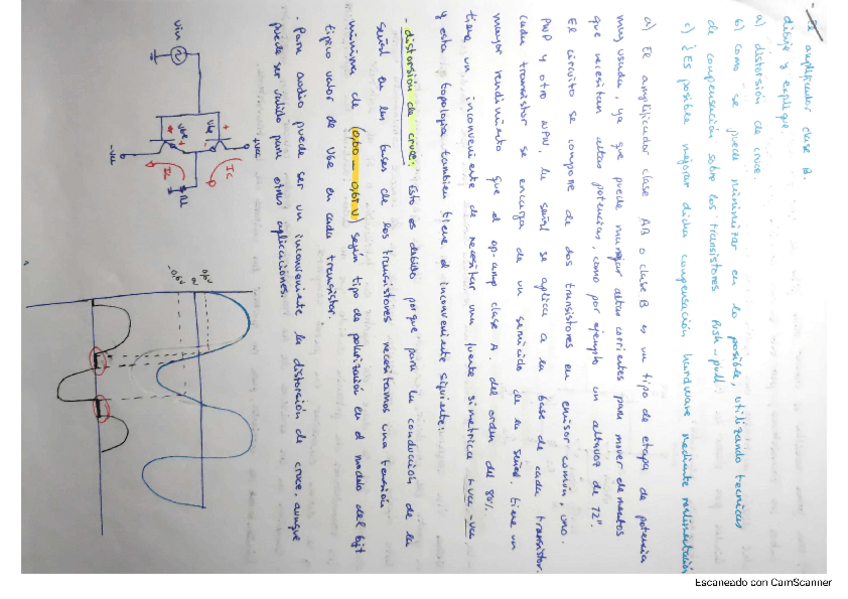 - El amplificador clase B.
dibuje y explique.
a) distorsión de cruce.
b) como se puede minimizar en lo posible, utilizando tecnicas
de compensación sobre los transistores Push-pull
c) ¿Es posible mejorar dicha compensación hardware mediante realimentación
a) El amplificador clase AB o clase B es un tipo de etapa de potencia
muy usada, ya que puede manejar altas corrientes para mover elementos
que necesitan altas potencias, como por ejemplo un altavoz de 12".
El circuito se compone de dos transistores en emisor común, uno
PNP y otro NPN, la señal se aplica a la base de cada transistor.
cada transistor se encarga de un semiciclo de la señal. tiene un
mayor rendimiento que el op-amp clase A. del orden del 80%
tiene un inconveniente de necesitar una fuente simetrica +vcc -vcc
y esta topologia tambien tiene el inconveniente siguiente:
- distorsión de cruce: Esto es debido porque para la conducción de la
señal en las bases de los transistores necesitamos una tensión
minima de (0,60 - 0,65 V) según tipo de polarización en el modelo del bjt
tipico valor de Vbe en cada transistor.
· Para audio puede ser un inconveniente la distorsión de cruce, aunque
puede ser valido para otras aplicaciones.
Vin
+vcc
Vbe
Ic
Vbe
RL
Ic
-vcc
0,6v
0v
-0,6v
Escaneado con CamScanner